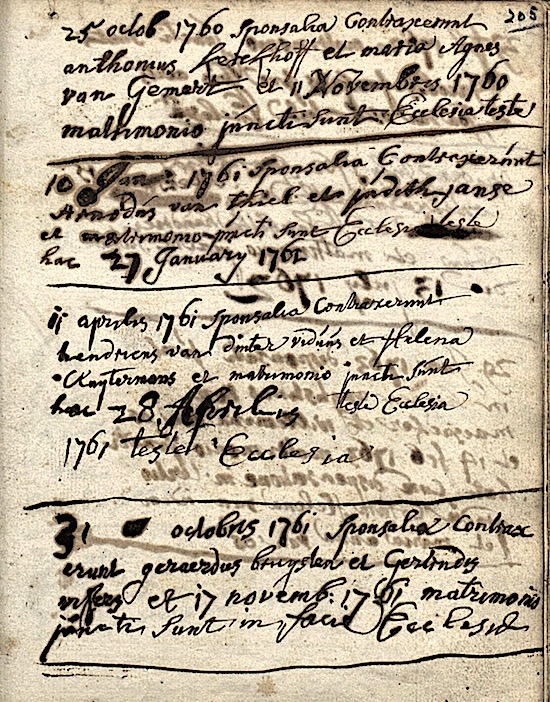 205
25 octob 1760 sponsalia Contraxerunt
anthonius kerckhoff et maria Agnes
van Gemert et 11 Novembris 1760
matrimonio juncti sunt Ecclesia teste
10 Jan 1761 sponsalia Contraxerunt
Arnoldus van thiel et judith janse
et matrimonio juncti sunt Ecclesia teste
hac 27 January 1761
11 aprilis 1761 sponsalia Contraxerunt
hendricus van dinter viduus et Helena
Kuytermans et matrimonio juncti sunt
hac 28 Aprilis teste Ecclesia
1761 teste Ecclesia
31 octobris 1761 sponsalia Contrax
erunt gerardus bruysten et Gertrudis
et 17 novemb: 1761 matrimonio
juncti sunt in facie Ecclesia